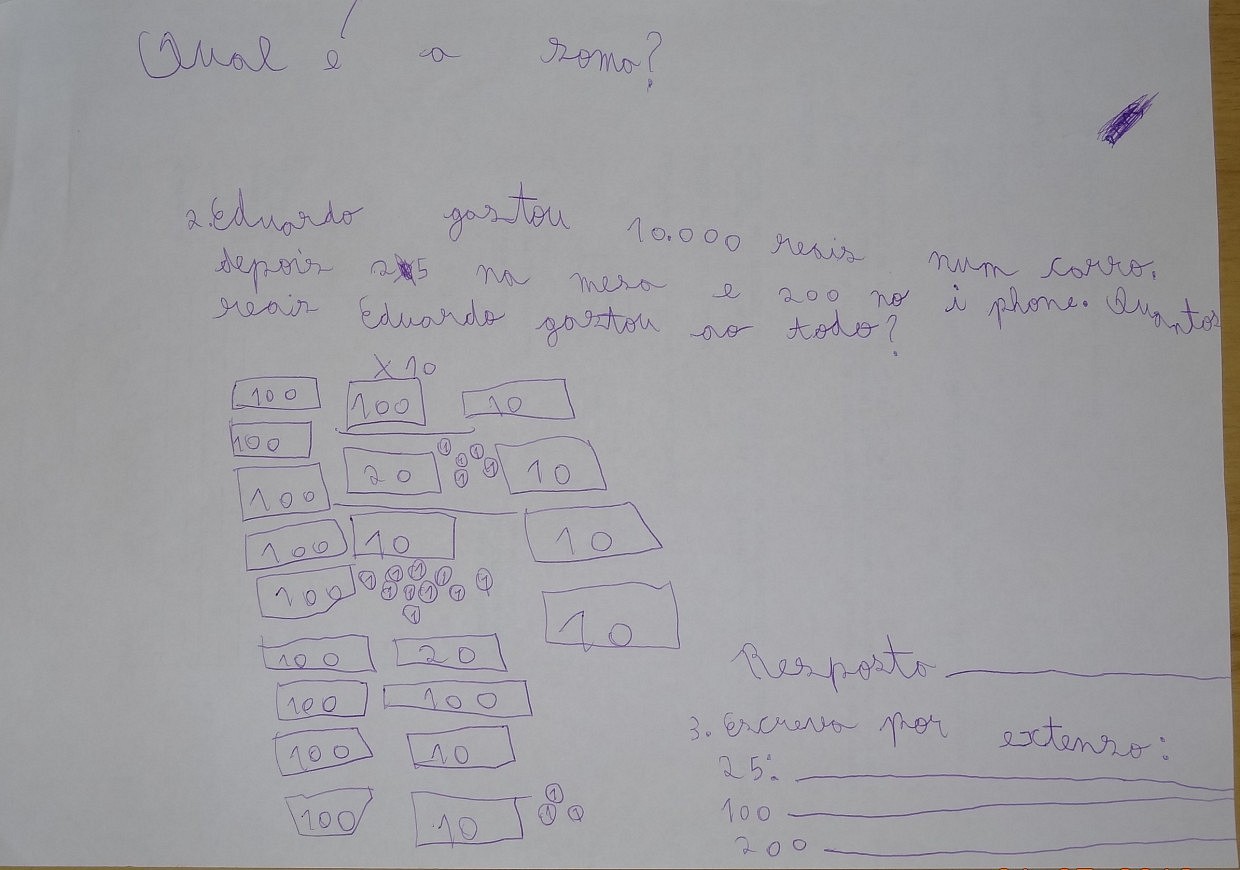 Qual é a soma?
2. Eduardo gastou 10.000 reais num carro.
depois 25 na mesa e 200 no i phone. Quantos
reais Eduardo gastou ao todo?
X 10
100 100 10
100
20 1 1 1 1 1 10
100
100 10 10
100 1 1 1 1 1 1 1 1 1 1 1
10
100 20
100 100
100 10
100 10 1 1 1
Resposta
3. Escreva por extenso:
25:
100
200